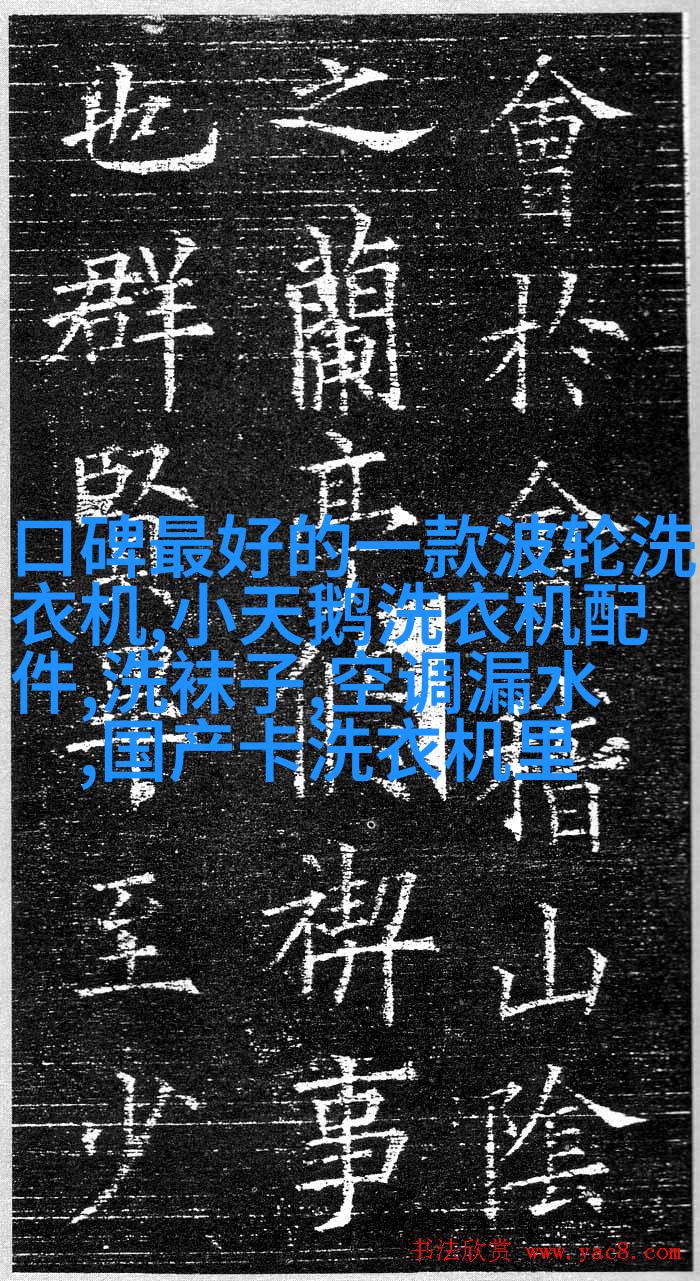 會於會稽山陰
之蘭亭脩禊事
也群賢畢至少
口碑最好的一款波轮洗
衣机,小天鹅洗衣机配
件,洗袜子,空调漏水
,国产卡洗衣机里
书法欣赏 www.yac8.com